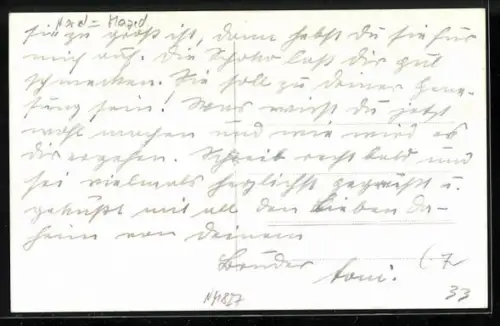 sie zu groß ist, dann hebst du sie für
mich auf. Die Schoko laß dir gut
schmecken. Sie soll zu deiner Gene-
sung sein! Was wirst du jetzt
wohl machen und wie wird es
dir ergehen. Schreib recht bald und
sei vielmals herzlichst gegrüßt u.
geküßt mit all den Lieben da-
heim von deinem
Bruder Toni.
33